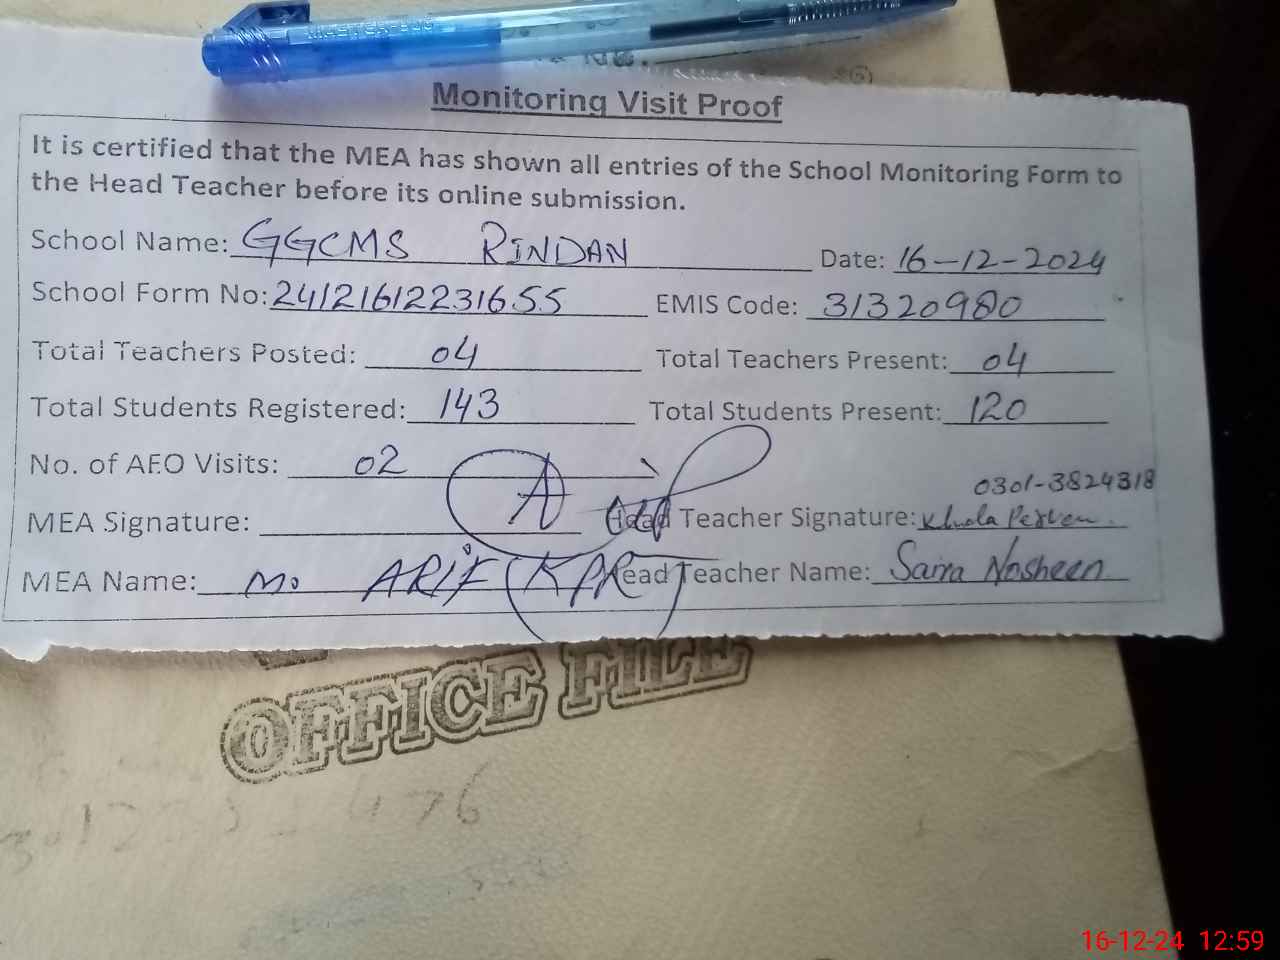 Monitoring Visit Proof
It is certified that the MEA has shown all entries of the School Monitoring Form to
the Head Teacher before its online submission.
School Name: GGCMS RINDAN Date: 16-12-2024
School Form No: 241216122231655 EMIS Code: 31320980
Total Teachers Posted: 04 Total Teachers Present: 04
Total Students Registered: 143 Total Students Present: 120
No. of AEO Visits: 02
0301-3824318
MEA Signature: Head Teacher Signature: Khola Perveen
MEA Name: M. ARIF (KPR) Head Teacher Name: Saira Nosheen
OFFICE FILE
476
16-12-24 12:59